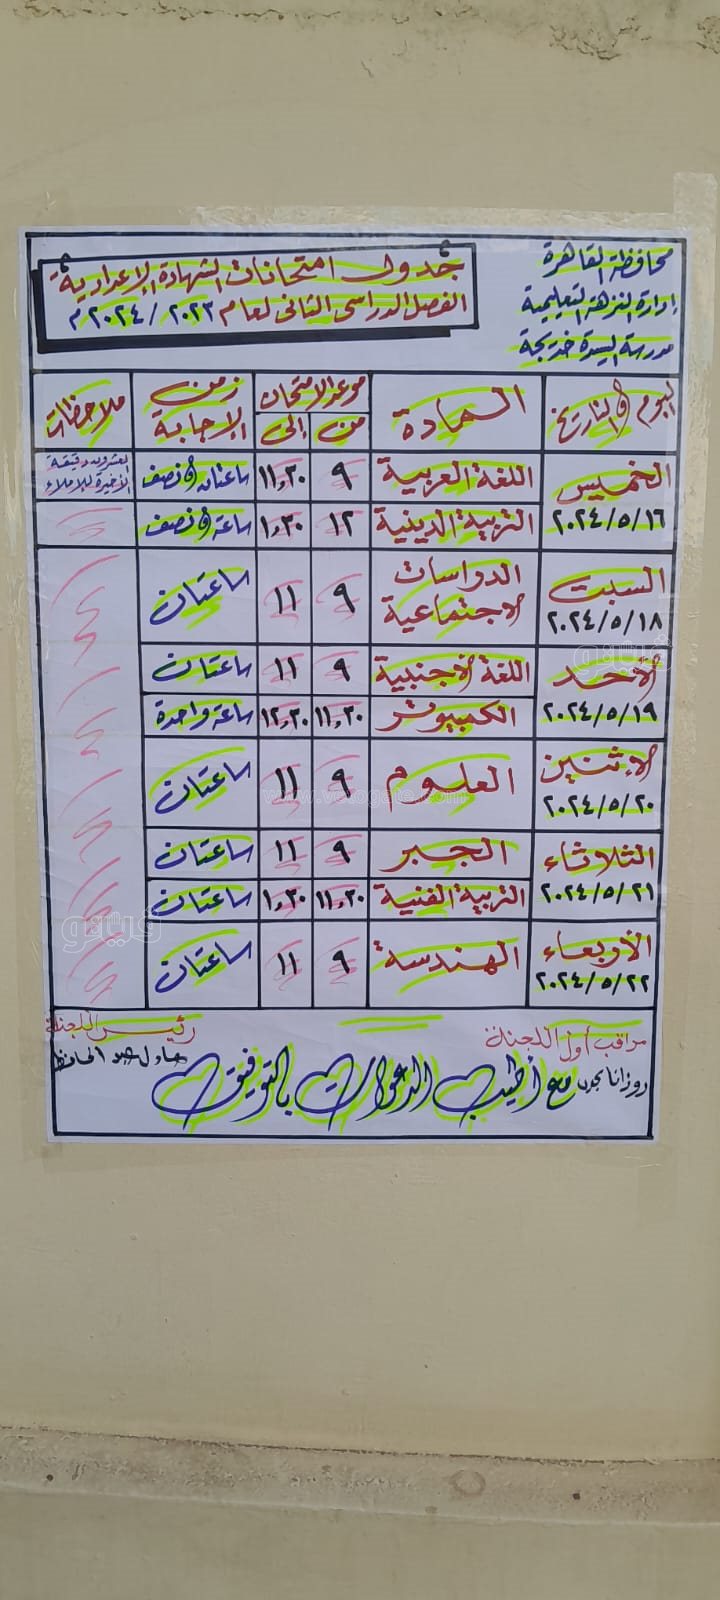 محافظة القاهرة
إدارة النزهة التعليمية
مدرسة السيدة خديجة
جدول امتحانات الشهادة الإعدادية
الفصل الدراسى الثانى لعام ٢٠٢٣ / ٢٠٢٤ م
اليوم والتاريخ
المادة
موعد الامتحان
من
إلى
زمن الإجابة
ملاحظات
الخميس
٢٠٢٤/٥/١٦
اللغة العربية
٩
١١,٣٠
ساعتان ونصف
العشرون دقيقة
الأخيرة للإملاء
التربية الدينية
١٢
١,٣٠
ساعة ونصف
السبت
٢٠٢٤/٥/١٨
الدراسات
الاجتماعية
٩
١١
ساعتان
الأحد
٢٠٢٤/٥/١٩
اللغة الأجنبية
٩
١١
ساعتان
الكمبيوتر
١١,٣٠
١٢,٣٠
ساعة واحدة
الإثنين
٢٠٢٤/٥/٢٠
العلوم
٩
١١
ساعتان
الثلاثاء
٢٠٢٤/٥/٢١
الجبر
٩
١١
ساعتان
التربية الفنية
١١,٣٠
١,٣٠
ساعتان
الأربعاء
٢٠٢٤/٥/٢٢
الهندسة
٩
١١
ساعتان
مراقب أول اللجنة
رئيس اللجنة
عبد الحافظ
مع أطيب الدعوات بالتوفيق
فيتو
www.vetogate.com
فيتو